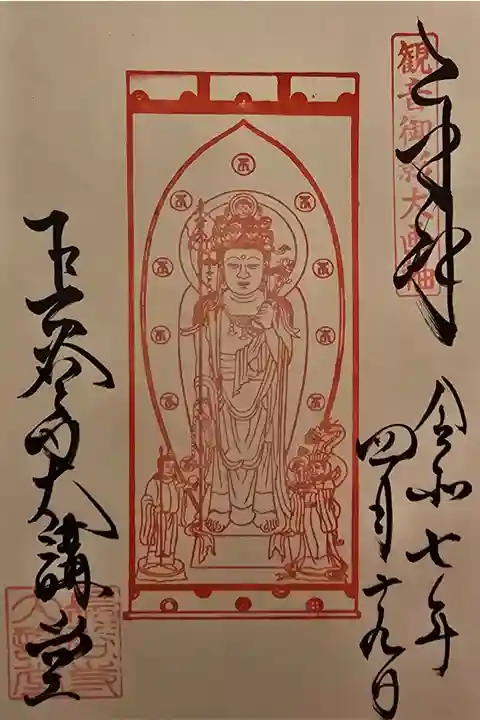 観音御影大画軸
奉拝
令和七年
四月十九日
長谷寺大講堂